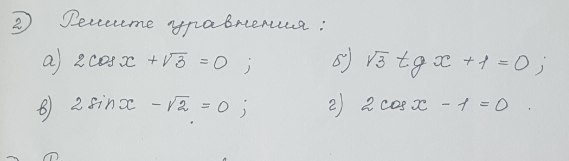 2) Решите уравнения:
а) 2cosx + √3 = 0 ; б) √3 tg x + 1 = 0 ;
в) 2sinx − √2 = 0 ; г) 2cosx − 1 = 0 .